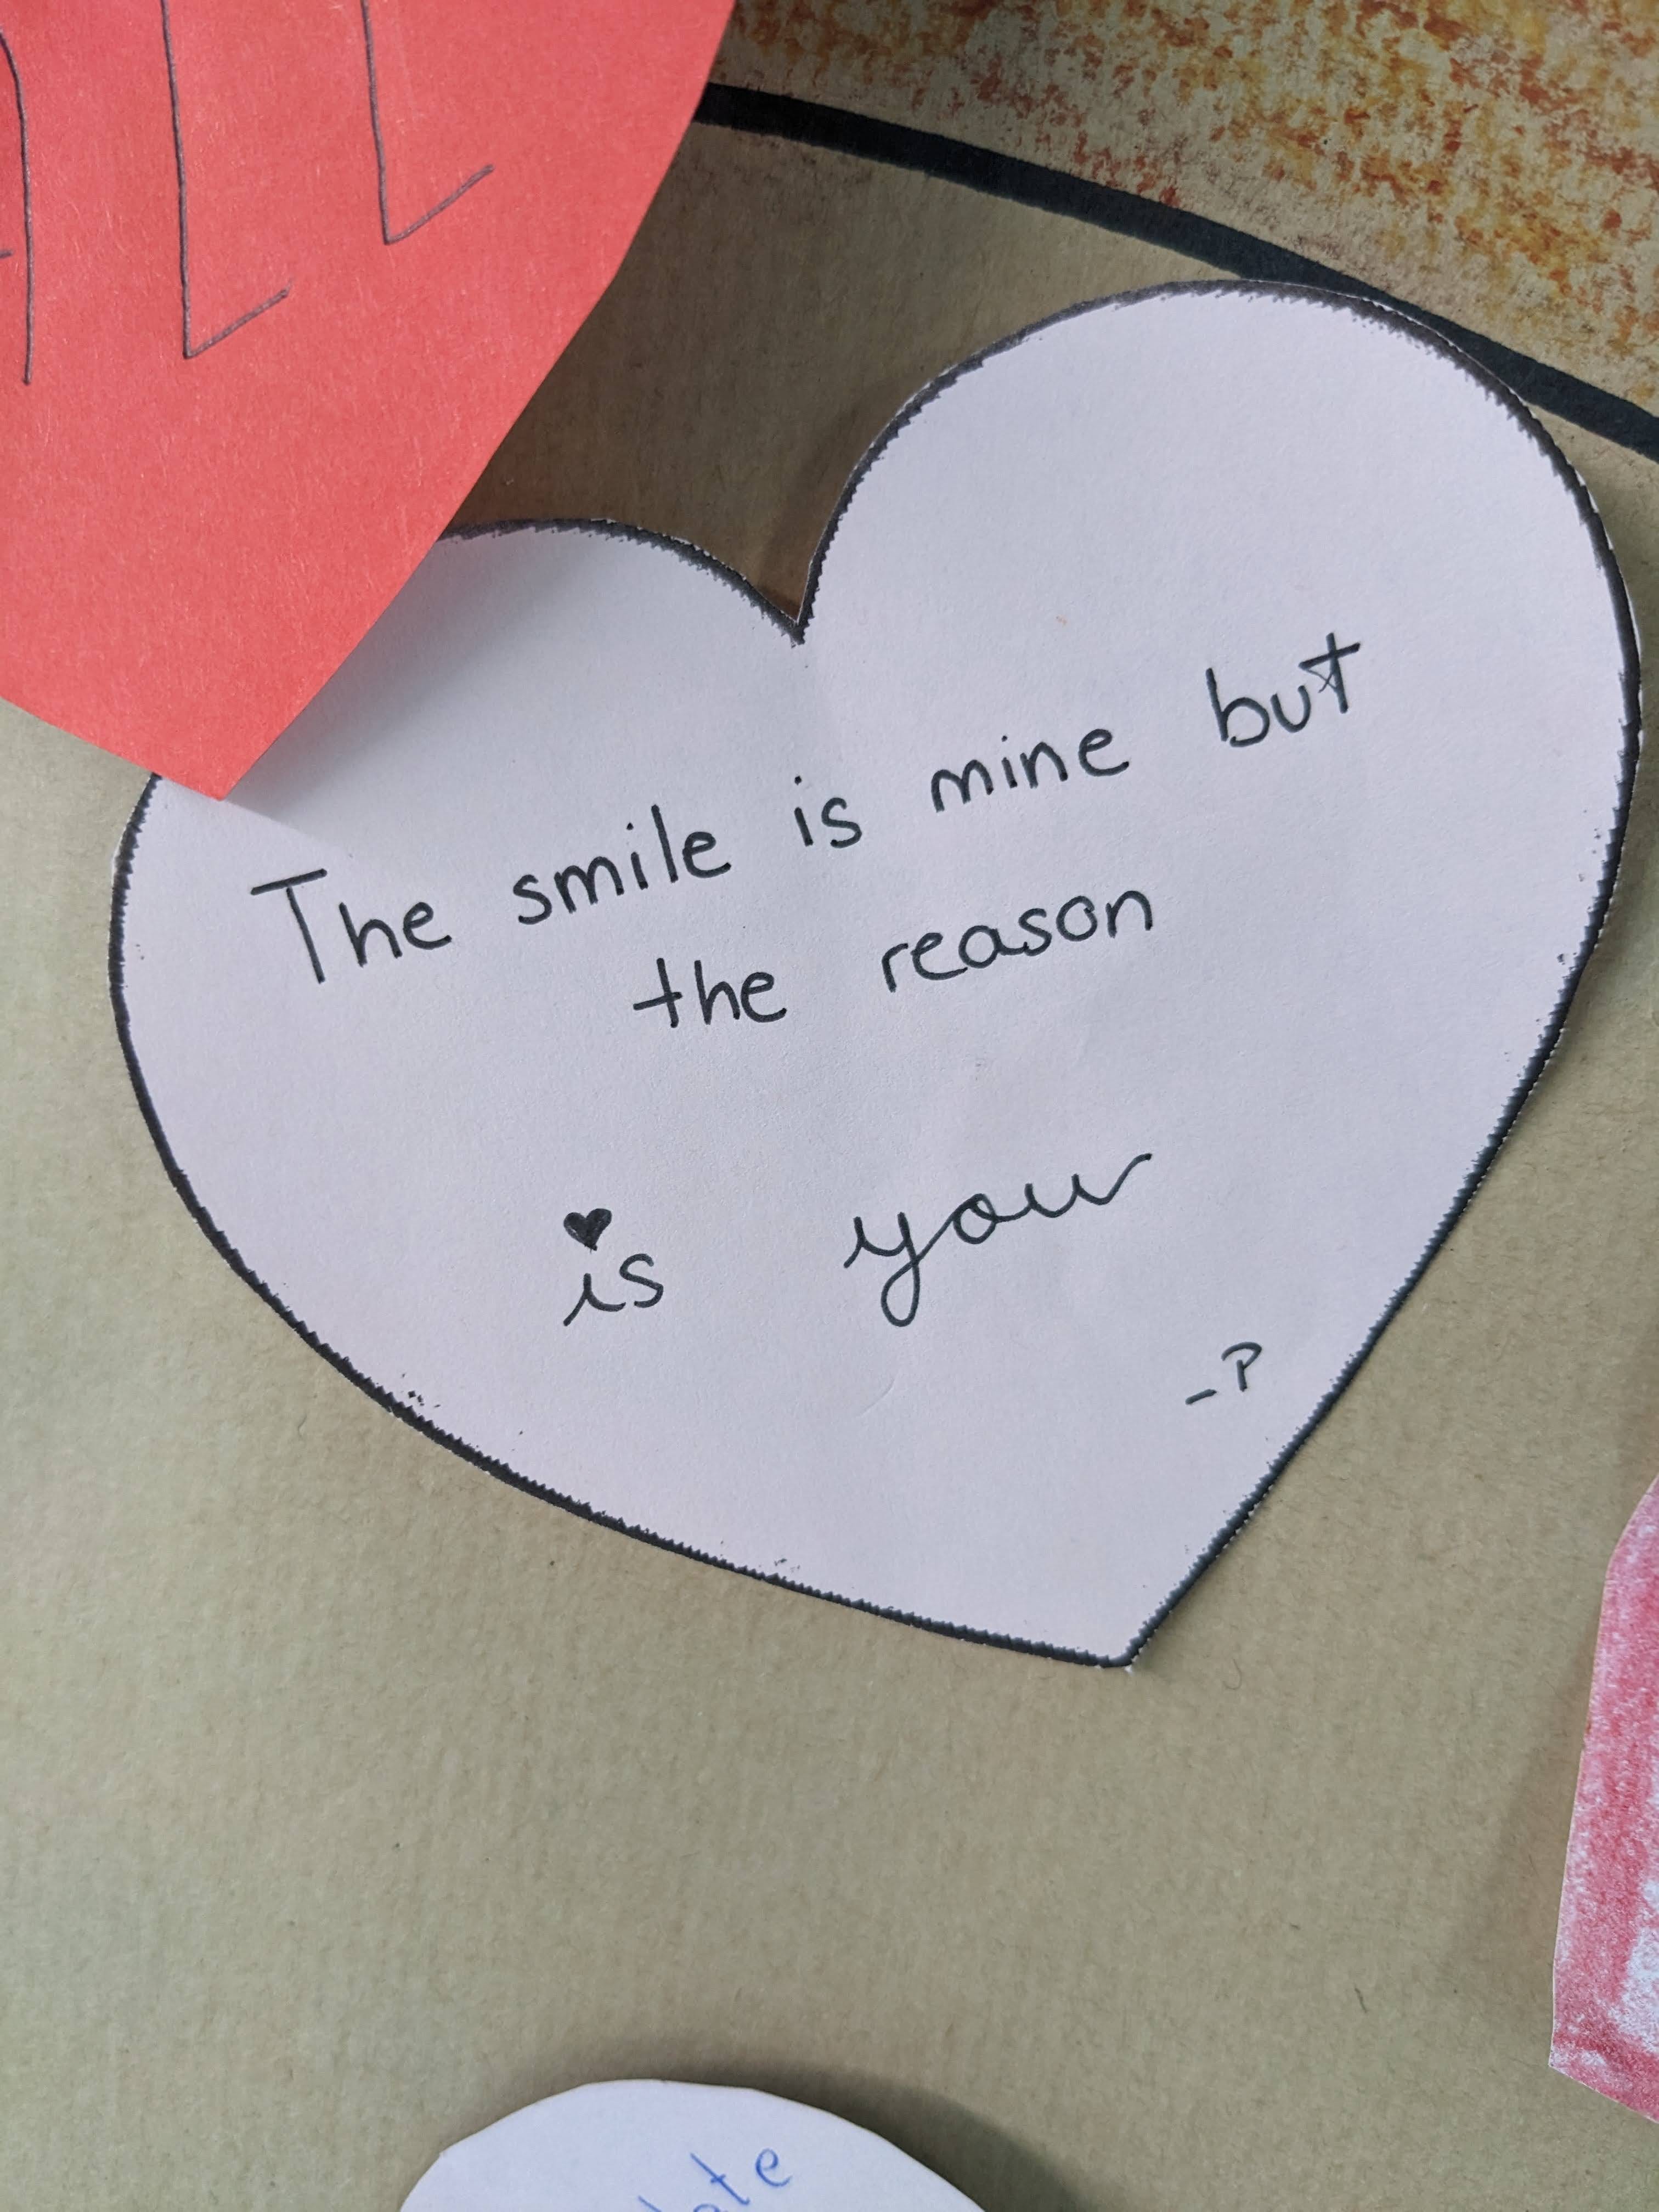 The smile is mine but
the reason
is you
-P